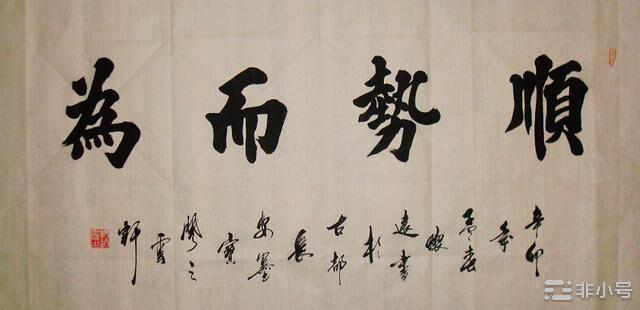 順勢而為
辛卯
年
孟春
晙
遠書
於
古都
長
安墨
寶
閣之
雲
軒
非小号